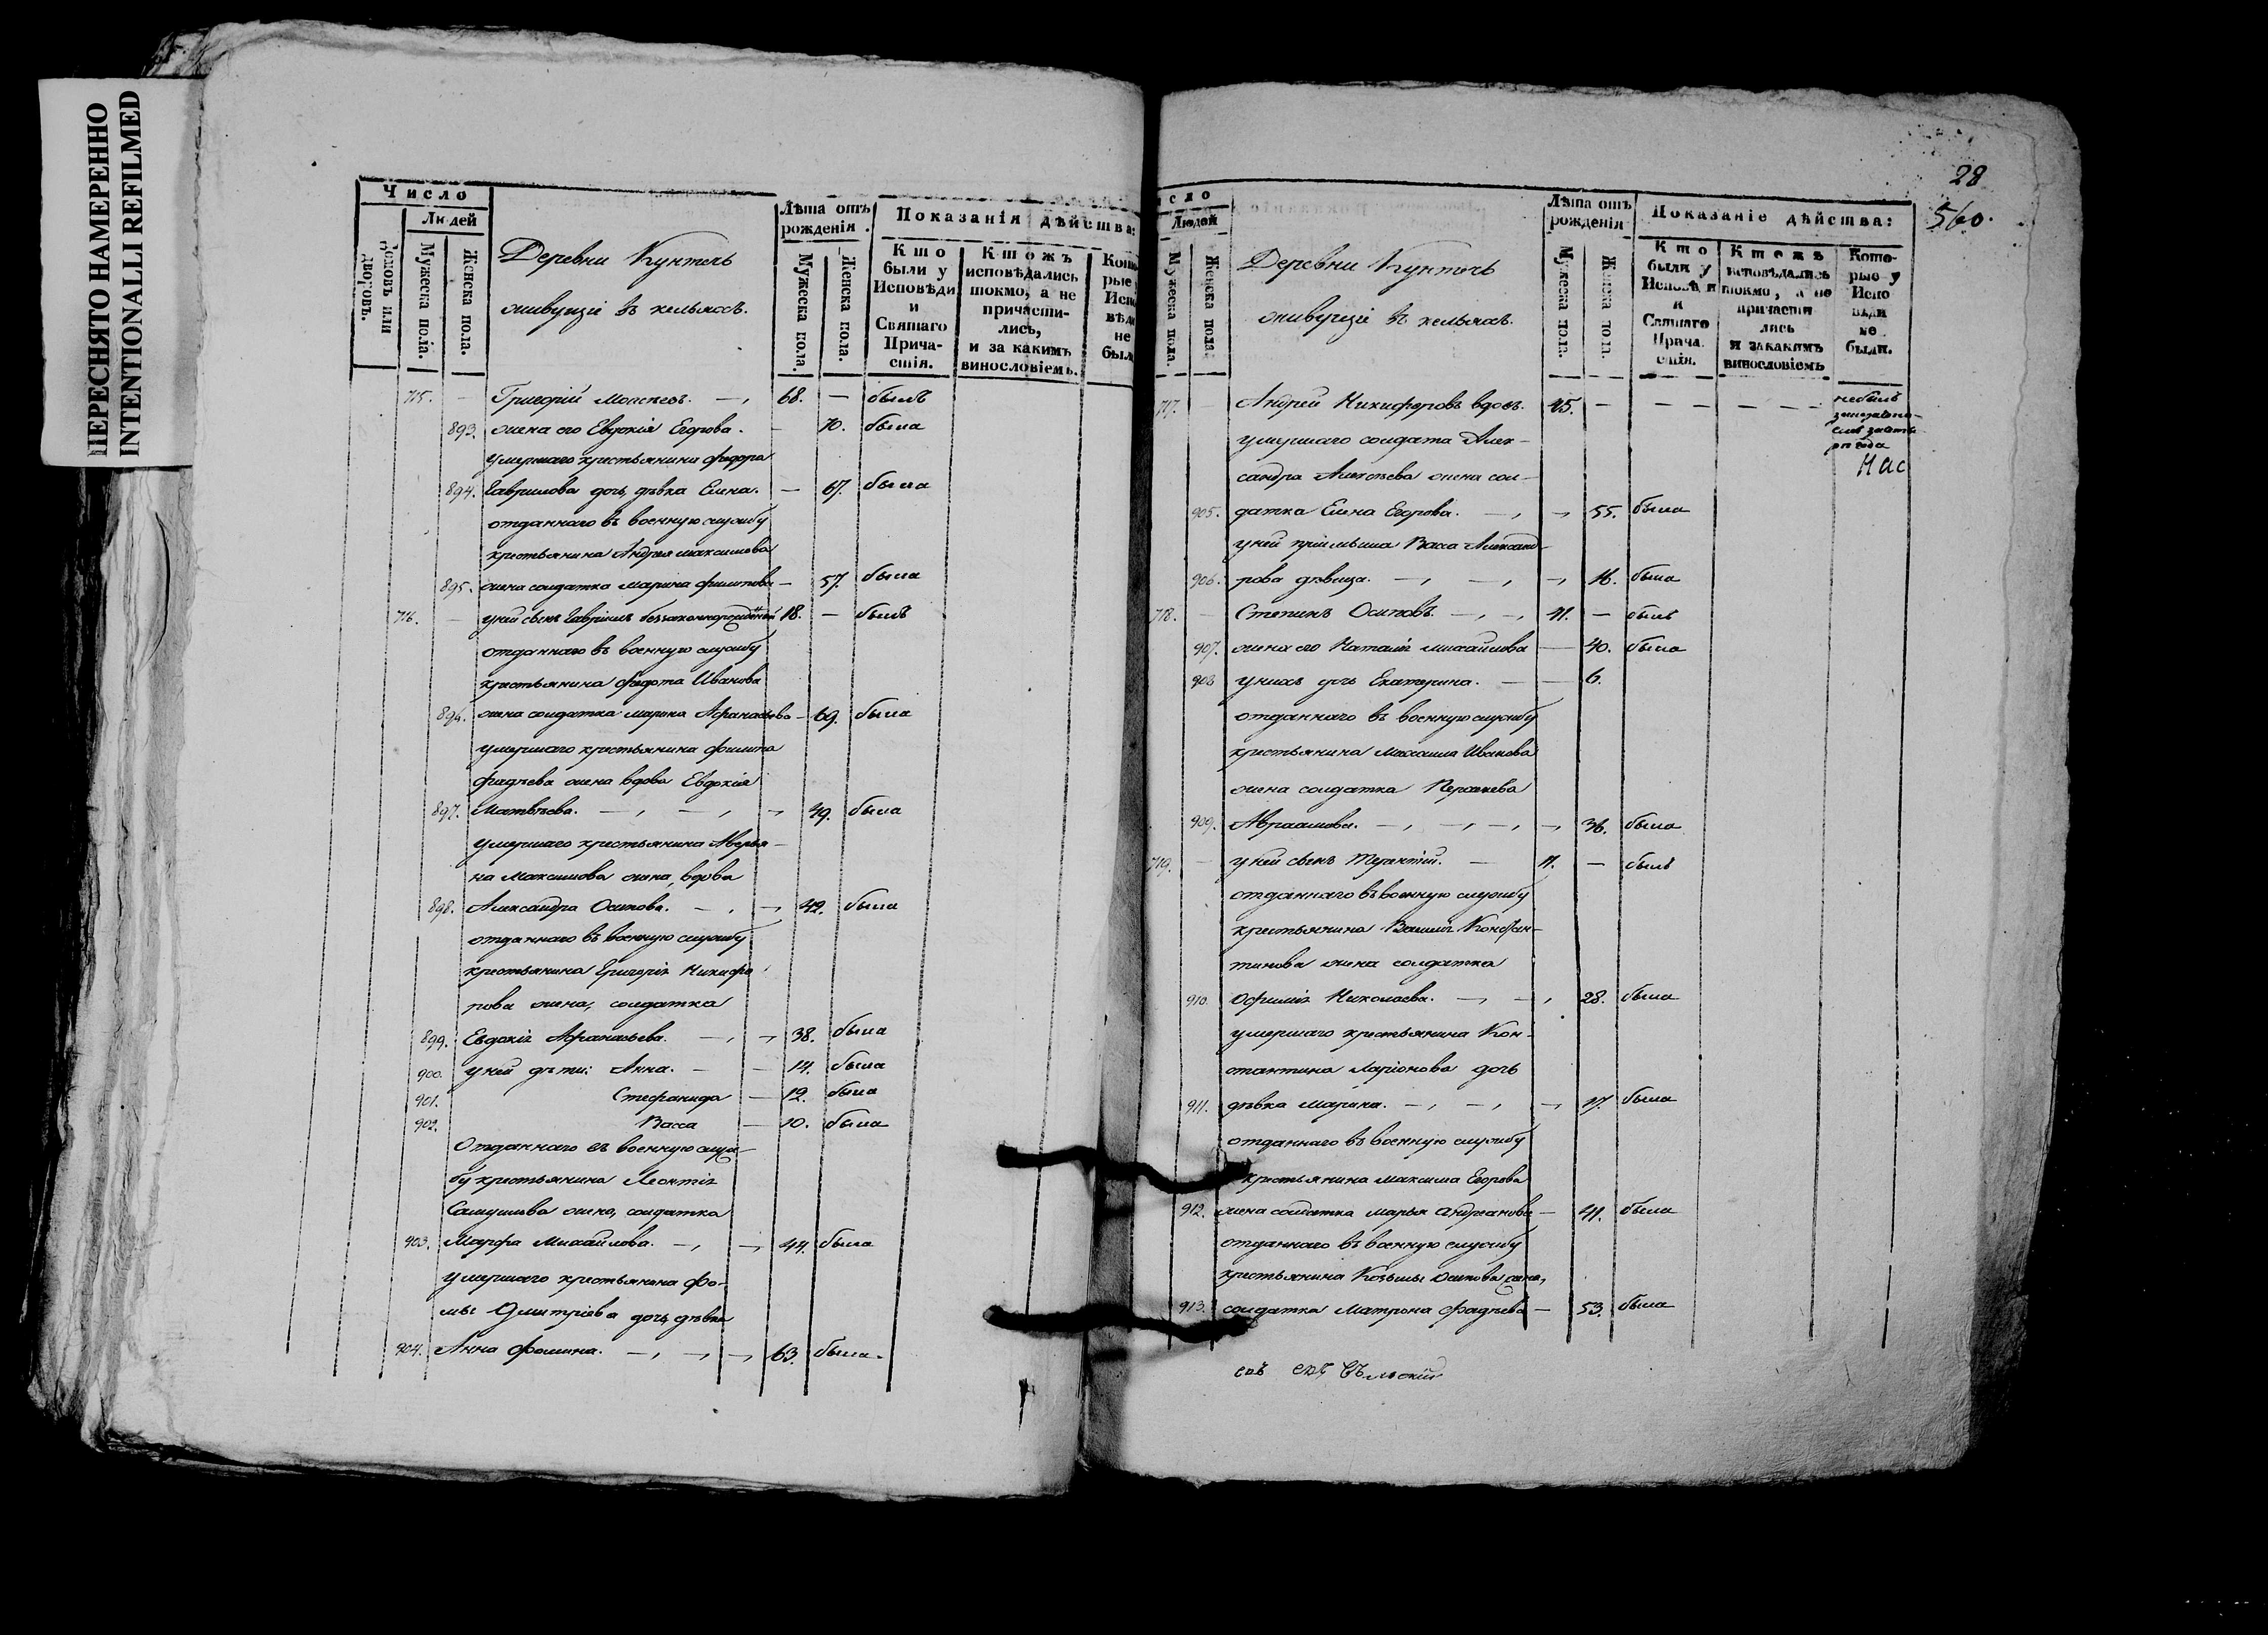 ПЕРЕСНЯТО НАМЕРЕННО
INTENTIONALLI REFILMED
Число
Людей
домовъ или дворовъ.
Мужеска пола.
Женска пола.
Деревни Кунтечь
живущіе въ кельяхъ.
Лѣта отъ рожденія.
Мужеска пола.
Женска пола.
Показанія дѣйства:
Кто были у Исповѣди и Святаго Причастія.
Ктожъ исповѣдались токмо, а не причастились, и за какимъ винословіемъ.
715. — Григорій Моисеевъ. — 68. — былъ
893. жена его Евдокія Егорова. — 70. была
умершаго крестьянина Федора
894. Гаврилова дочь, дѣвка Елена. — 67. была
отданнаго въ военную службу
крестьянина Андрея Максимова
895. жена солдатка Марина Филипова — 57. была
716. — у ней сынъ Гавріилъ беззаконнорожденный 18. — былъ
отданнаго въ военную службу
крестьянина Федота Иванова
896. жена солдатка Марина Афанасьева — 69. была
умершаго крестьянина Филипа
Фадѣева жена вдова Евдокія
897. Матвѣева. — 49. была
умершаго крестьянина Аверья-
на Максимова жена, вдова
898. Александра Осипова. — 42. была
отданнаго въ военную службу
крестьянина Григорія Никифо
рова жена, солдатка
899. Евдокія Афанасьева. — 38. была
900. у ней дѣти: Анна. — 14. была
901. Стефанида — 12. была
902. Васса — 10. была
Отданнаго въ военную служ-
бу крестьянина Леонтія
Самуилова жена, солдатка
903. Марфа Михайлова. — 44. была
умершаго крестьянина Фо-
мы Дмитріева дочь, дѣвка
904. Анна Фомина. — 63. была.
28
560.
Людей
Мужеска пола.
Женска пола.
Деревни Кунтечь
живущіе въ кельяхъ.
Лѣта отъ рожденія
Мужеска пола.
Женска пола.
Показаніе дѣйства:
Кто были у Исповѣди и Святаго Причастія.
Ктожъ исповѣдались токмо, а не причастились и за какимъ винословіемъ
Которые у Исповѣди не были.
717. Андрей Никифоровъ вдовъ. 45. — — — — — не былъ
умершаго солдата Алек-
сандра Алексѣева жена сол-
905. датка Елена Егорова. — 55. была
у ней пріемыша Васса Александ-
906. рова дѣвица. — 16. была
718. — Степанъ Осиповъ. — 41. — былъ
907. жена его Наталія Михайлова — 40. была
908 у нихъ дочь Екатерина. — 6.
отданнаго въ военную службу
крестьянина Михаила Иванова
жена солдатка
909. Авраамова. — 36. была
719. — у ней сынъ Терентій. — 11. — былъ
отданнаго въ военную службу
крестьянина Василія Констан-
тинова жена солдатка
910. Офимія Николаева. — 28. была
умершаго крестьянина Кон-
стантина Ларіонова дочь
911. дѣвка Марина. — 27. была
отданнаго въ военную службу
крестьянина Максима Егорова
912. жена солдатка Марья Андреанова — 41. была
отданнаго въ военную службу
крестьянина Козьмы Осипова жена,
913. солдатка Матрона Фадѣева — 53. была